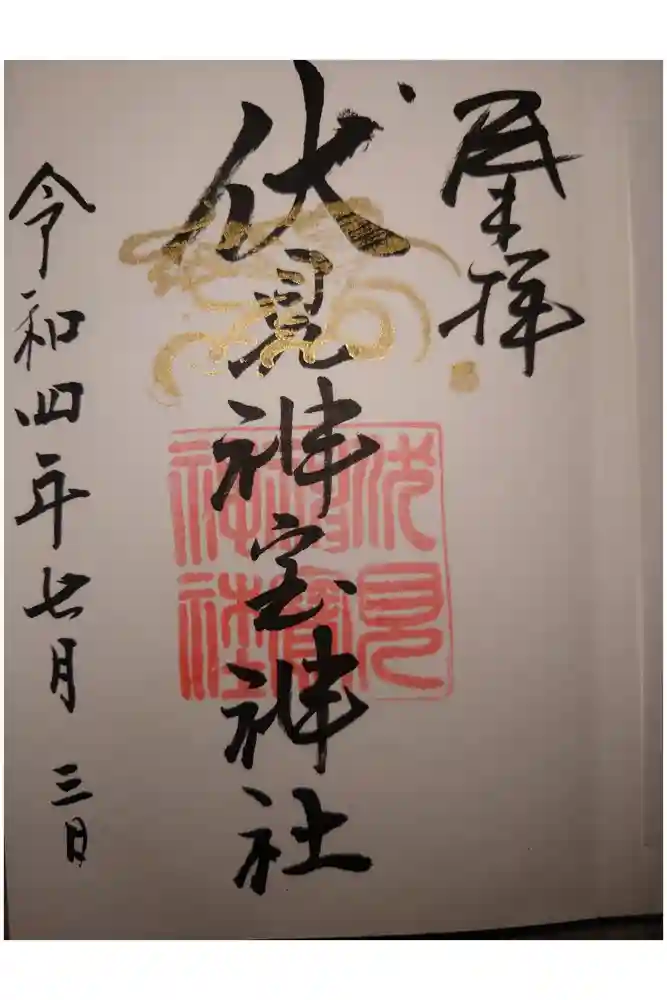 奉拝
伏見神宝神社
令和四年七月三日
伏見
神寶
神社